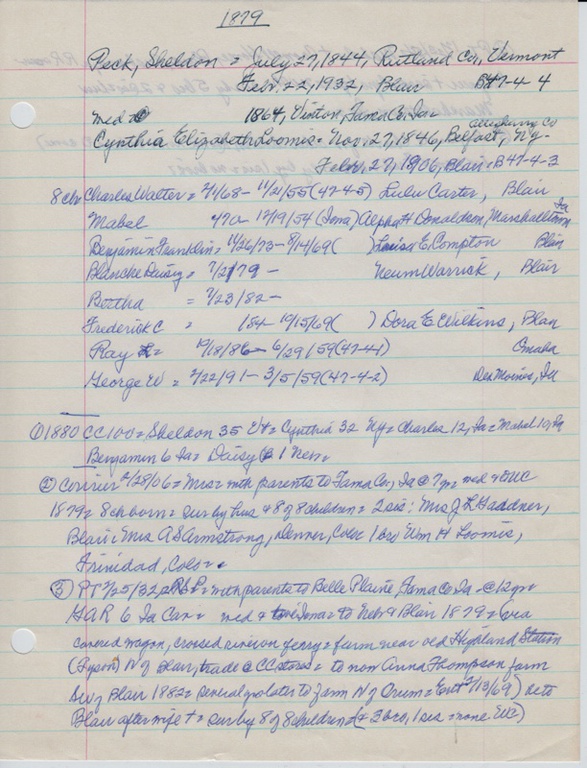 1879
Peck, Sheldon = July 27, 1844, Rutland Co, Vermont
Feb. 22, 1932, Blair B47-4-4
med 1864, Vinton, Tama Co, Ia=
Allegheny Co
Cynthia Elizabeth Loomis = Nov. 27, 1846, Belfast, Ny-
Feb. 27, 1906, Blair = B47-4-3
8 chr Charles Walter = 7/1/68 - 11/21/55 (47-4-5) Lulu Carter, Blair
Mabel 470 - 12/19/54 (Iona) Alpha H Donaldson, Marshalltown Ia
Benjamin Franklin = 11/26/73 - 8/14/69 ( ) Louisa E. Compton Blair
Blanche Daisy = 7/2/79 - Neum Warrick, Blair
Bertha = 7/23/82 -
Frederick C = 184 - 10/15/69 ( ) Dora E Wilkins, Blair
Ray = 10/18/86 - 6/29/59 (47-4-1) Omaha
George W = 2/22/91 - 3/5/59 (47-4-2) Des Moines, Ia
① 1880 CC 100 = Sheldon 35 Vt = Cynthia 32 Ny = Charles 12, Ia = Mabel 10, Ia
Benjamin 6 Ia = Daisy 1 Neb =
② Courier 2/28/06 = Miss = with parents to Tama Co, Ia @ 7 yr = med + DUC
1879 = 8 ch born = sur by hus + 8 of 8 children = 2 sis: Mrs J L Gaddner,
Blair = Mrs A S Armstrong, Denver, Colo 1 bro Wm H Loomis,
Trinidad, Colo =
③ PT 2/25/32 = = with parents to Belle Plaine, Tama Co Ia - @ 12 yr =
GAR 6 Ia Cav = med + Iona = to Neb + Blair 1879 = via
covered wagon, crossed river on ferry = farm near old Highland Station
(Tyson) N of Blair, trade @ CC stores = to now Anna Thompson farm
SW of Blair 1882 = several yrs later to farm N of Orum = Ent 2/13/69) ret to
Blair after wife + = sur by 8 of 8 children (& 2 bro, 1 sis = none WC)